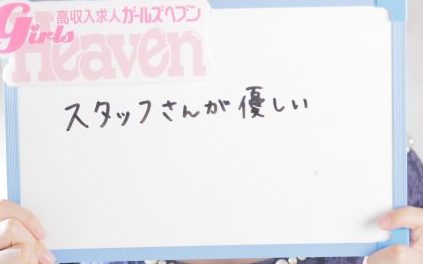 高収入求人ガールズヘブン
Girls
Heaven
スタッフさんが優しい